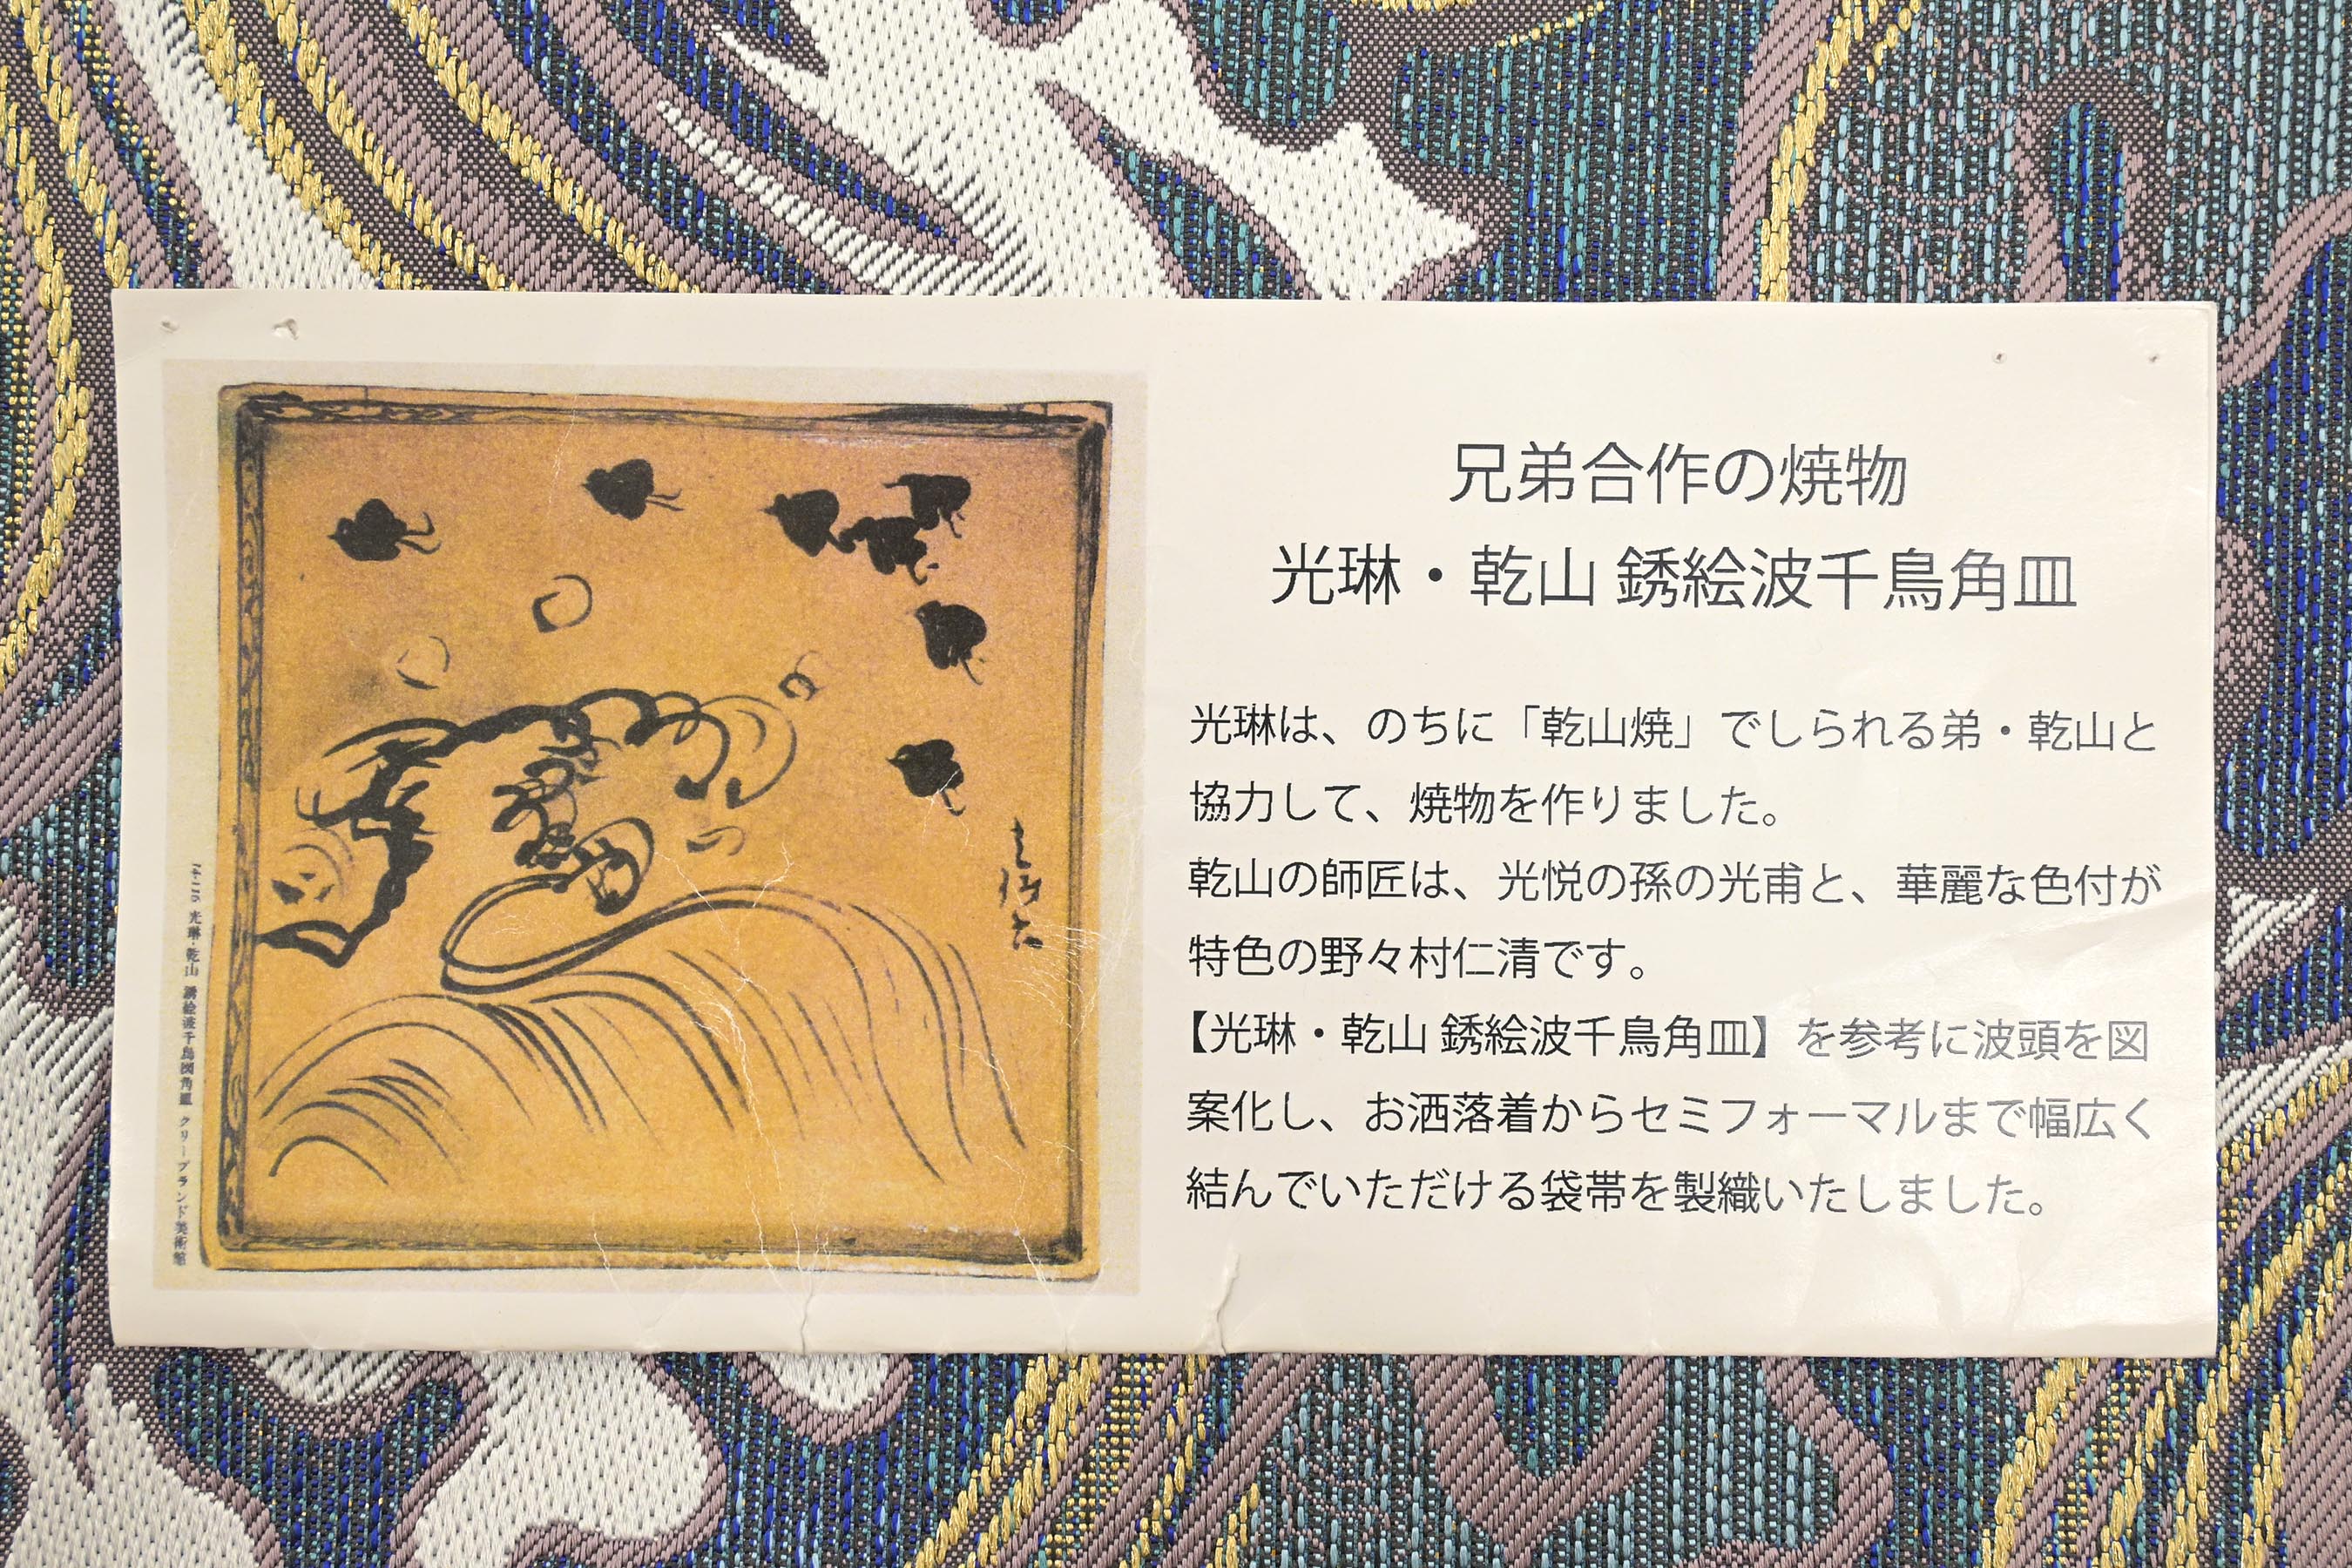 兄弟合作の焼物
光琳・乾山 銹絵波千鳥角皿
光琳は、のちに「乾山焼」でしられる弟・乾山と
協力して、焼物を作りました。
乾山の師匠は、光悦の孫の光甫と、華麗な色付が
特色の野々村仁清です。
【光琳・乾山 銹絵波千鳥角皿】を参考に波頭を図
案化し、お洒落着からセミフォーマルまで幅広く
結んでいただける袋帯を製織いたしました。
光琳・乾山 銹絵波千鳥図角皿 クリーブランド美術館